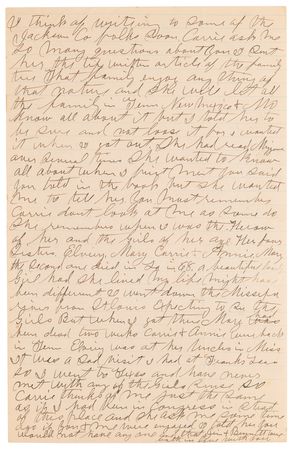 I think of writing to some of the
Jackson Co folks soon Carrie ask me
so many questions about You I sent
her the type written article of the family
tree that family enjoy any thing of
that nature and she will let all
the family in Tenn New Mexico & Mo
know all about it but I told her to
be sure and not loose it for I wanted
it when I got out She had read
over several times She wanted to know
all about when I first met You said
You told in the book but she wanted
me to tell her You must remember
Carrie dont look at me as some do
She remembers when I was the Hero
of her and the girls of her age Her four
Sisters, Mary Carrie & Annie Mary
the second one died in 68. a beautiful
Girl had she lived my life might have
been different I went down the Mississippi
river from St Louis to see the
Girls But when I got there Mary
been dead two weeks Carrie & Annie were back
in Tenn was at her Uncles in Miss
it was a sad visit I had at
so I went to Texas and have never
met with any of the Girls since So
Carrie thinks of me just the same
as if I had been in Congress instead
of this place and she ask me some time
ago if you & me were engaged to
would not have any one